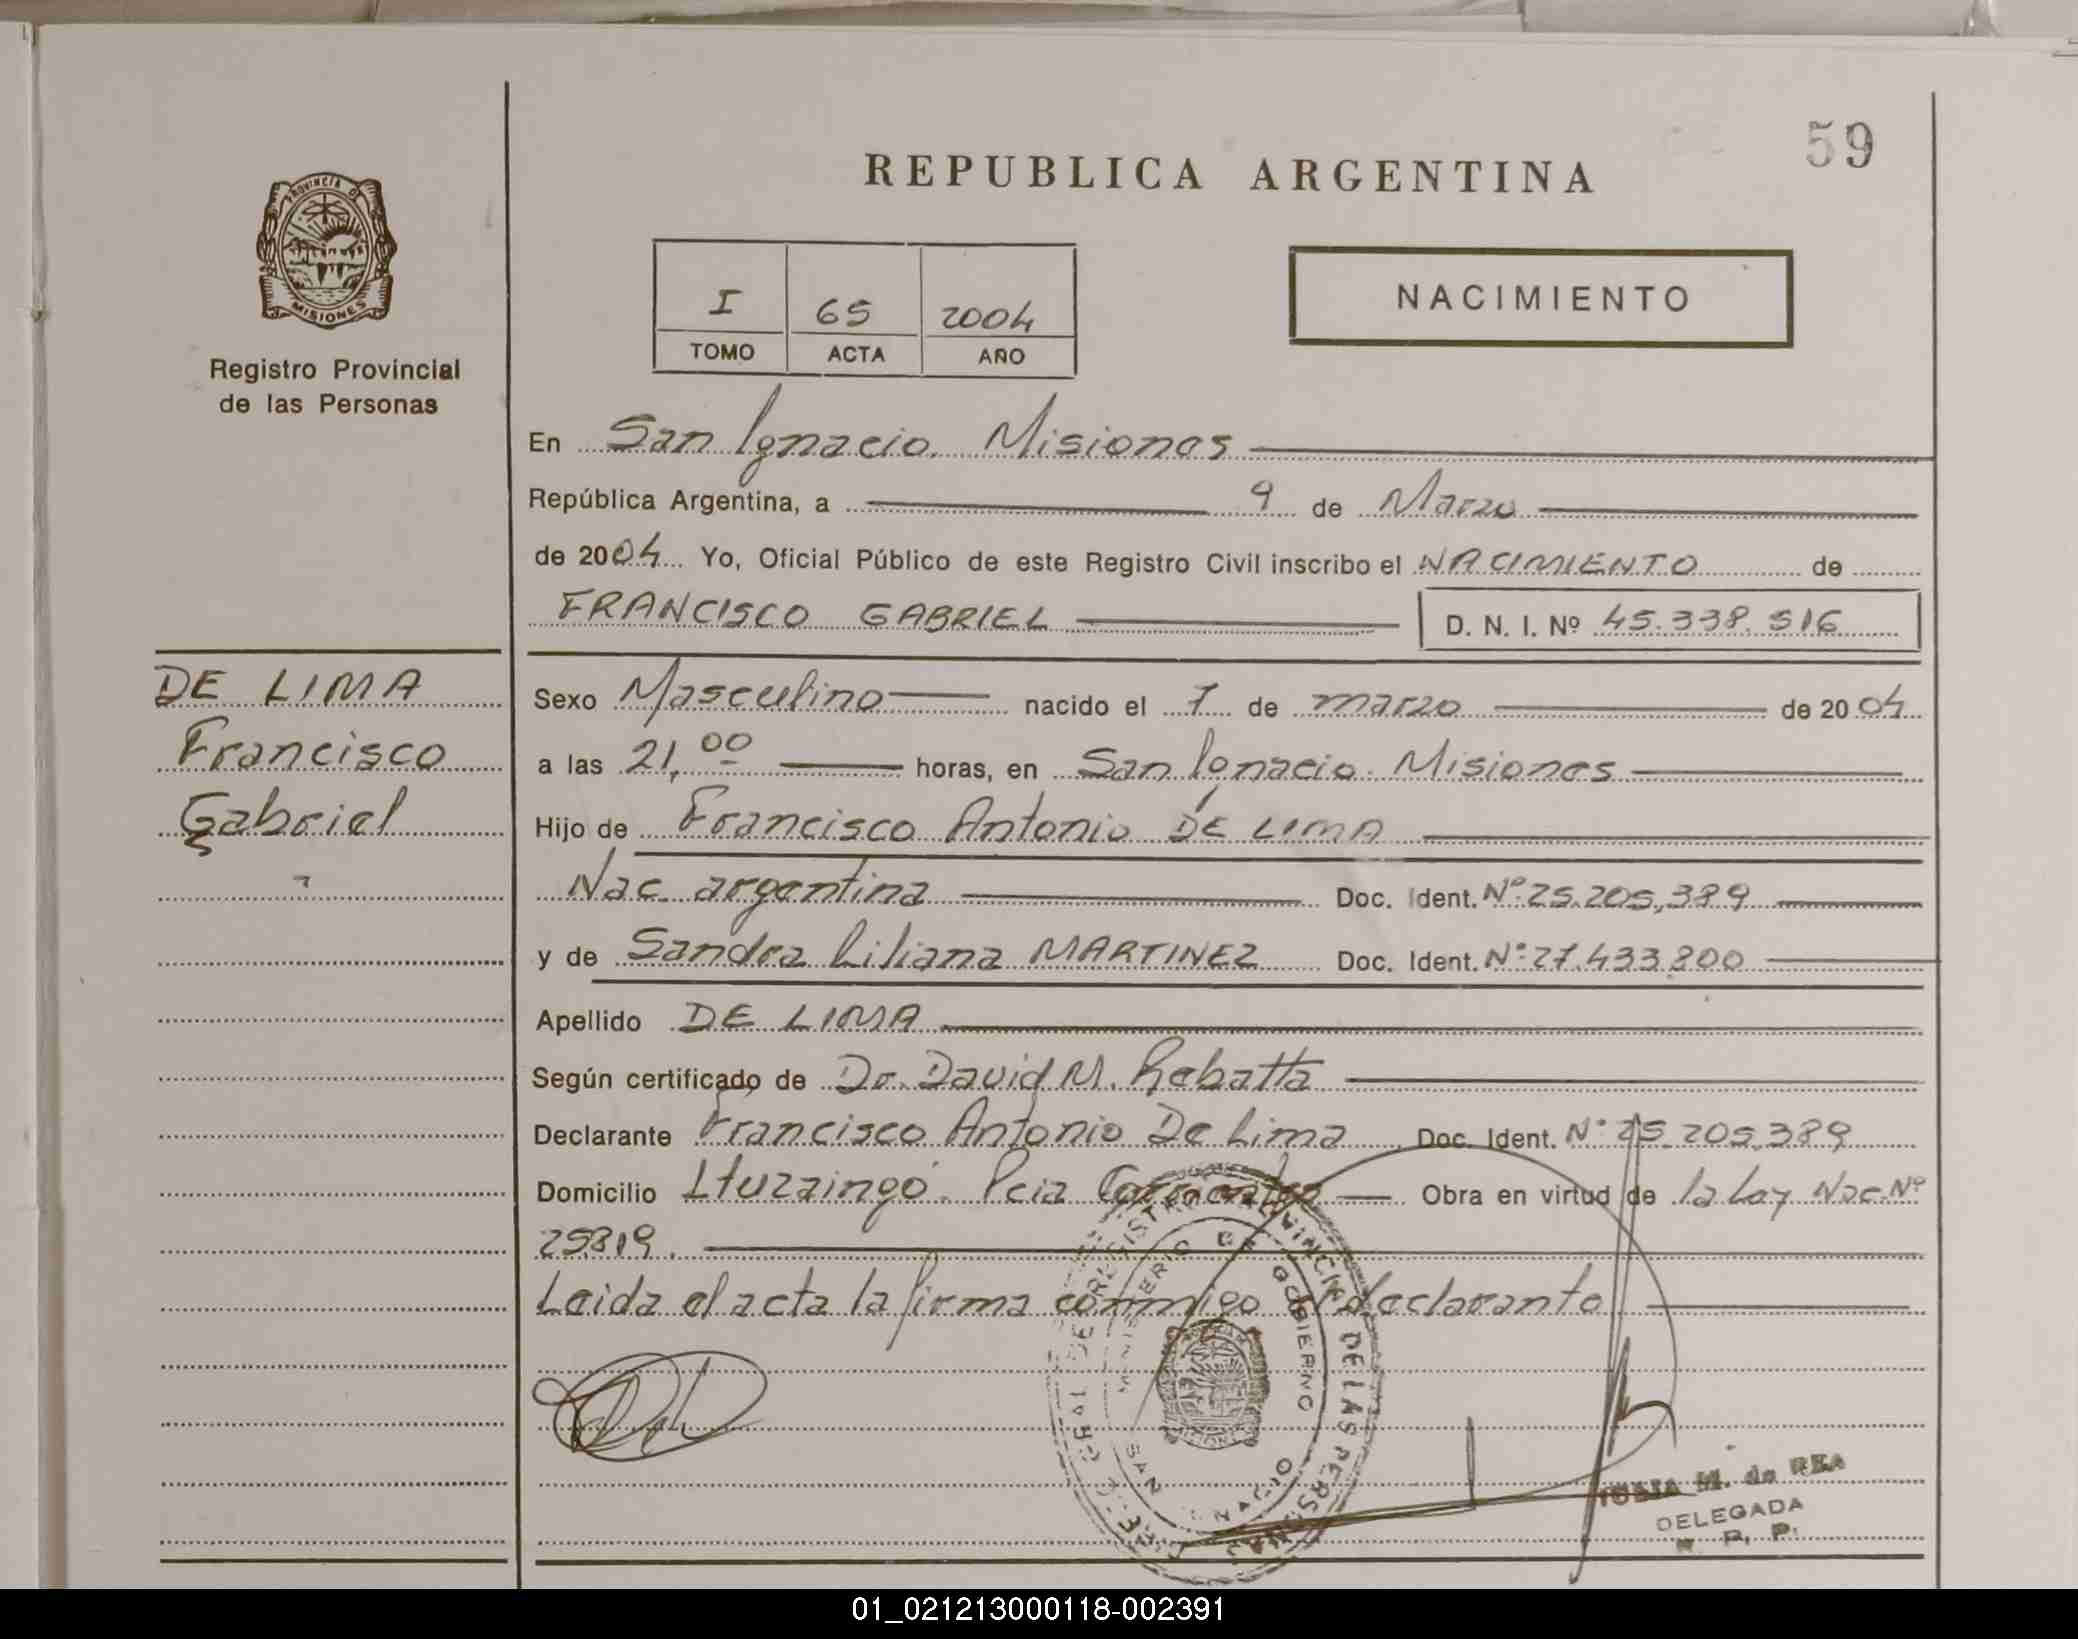 59
REPUBLICA ARGENTINA
PROVINCIA DE
MISIONES
Registro Provincial
de las Personas
I 65 2004
TOMO ACTA AÑO
NACIMIENTO
En San Ignacio. Misiones
República Argentina, a 9 de Marzo
de 2004 Yo, Oficial Público de este Registro Civil inscribo el NACIMIENTO de
FRANCISCO GABRIEL D. N. I. Nº 45.338.516
DE LIMA
Francisco
Gabriel
Sexo Masculino nacido el 7 de marzo de 2004
a las 21,00 horas, en San Ignacio. Misiones
Hijo de Francisco Antonio DE LIMA
Nac. argentina Doc. Ident. Nº 25.205.389
y de Sandra Liliana MARTINEZ Doc. Ident. Nº 27.433.800
Apellido DE LIMA
Según certificado de Dr. David M. Rebatta
Declarante Francisco Antonio De Lima Doc. Ident. Nº 25.205.389
Domicilio Ituzaingó. Pcia Corrientes Obra en virtud de la Ley Nac. Nº
25819.
Leida el acta la firma conmigo el declarante
MINISTERIO DE GOBIERNO
SAN IGNACIO
DE LAS PERSONAS
M. de REA
DELEGADA
R. P.
01_021213000118-002391